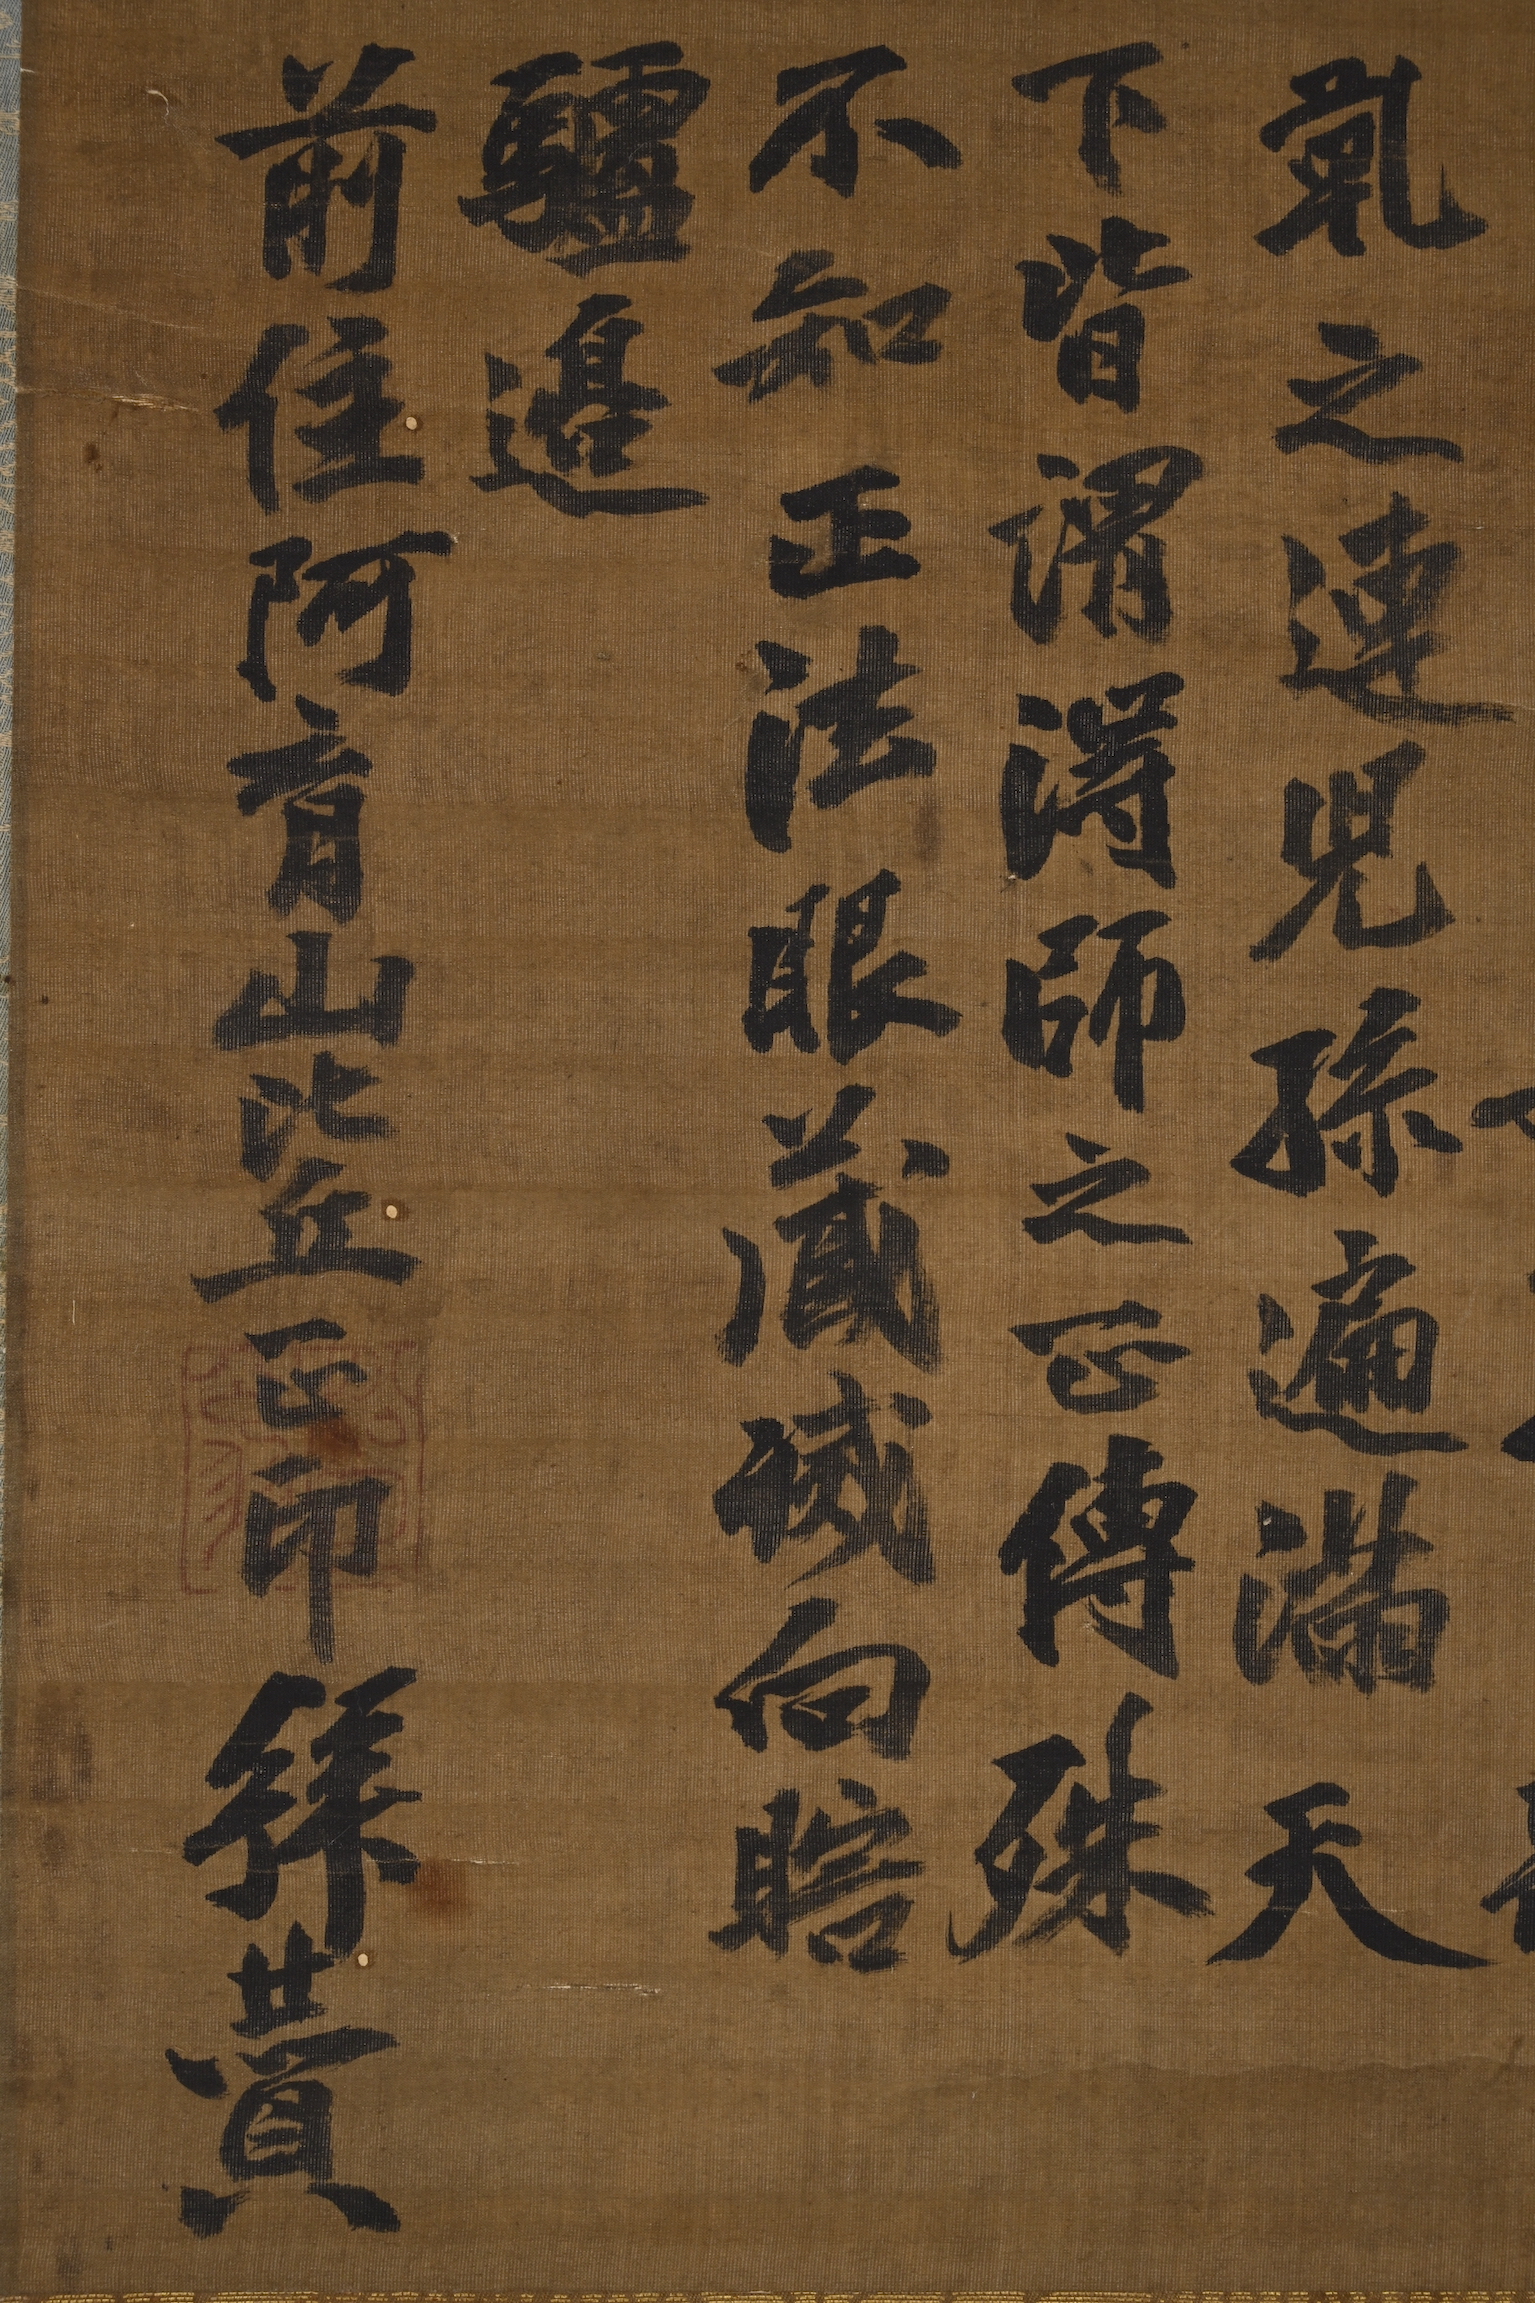 氣之連兒孫遍滿天
下皆謂得師之正傳殊
不知正法眼藏滅向瞎
驢邊
前住阿育山比丘正印拜賛